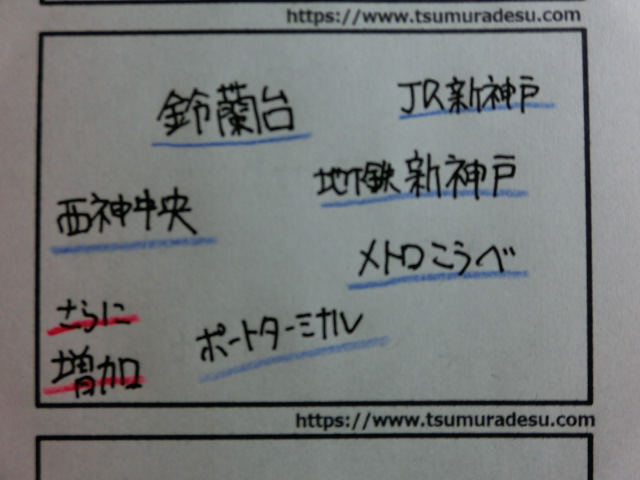 https://www.tsumuradesu.com
鈴蘭台
JR新神戸
地下鉄新神戸
西神中央
メトロこうべ
さらに
増加
ポートターミナル
https://www.tsumuradesu.com